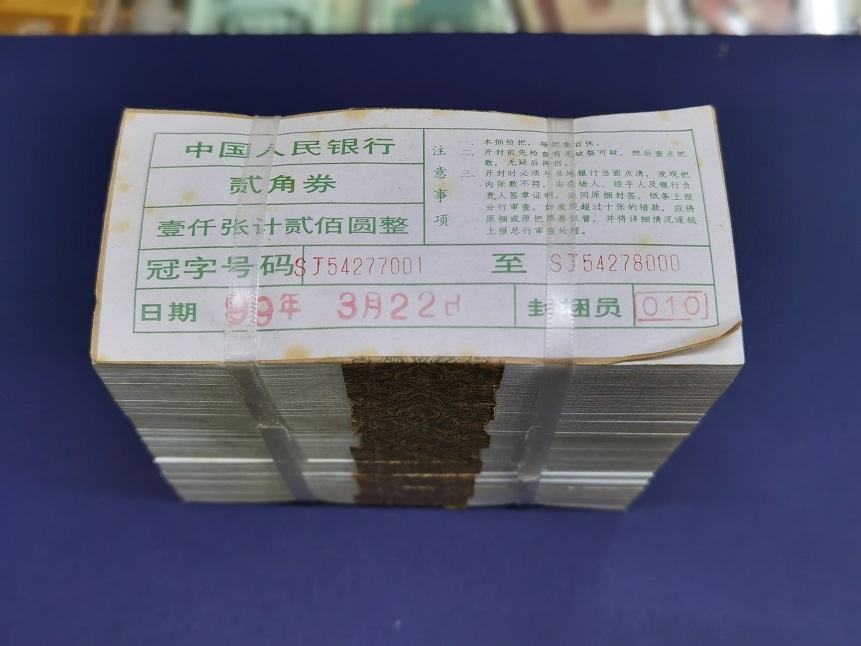 中国人民银行
贰角券
壹仟张计贰佰圆整
注意事项
一、本捆拾把，每把壹百张。
二、开封前先检查有无破裂可疑，然后查点把
数，无疑后再拆。
三、开封时必须与当地银行当面点清，发现把
内张数不符，由在场人、经手人及银行负
责人签章证明，连同原捆封签、纸条上报
分行审查。如发现超过十张的错款，应将
原捆或原把票券保管，并将详细情况逐级
上报总行审查处理。
冠字号码SJ54277001 至 SJ54278000
日期 99年 3月22日 封捆员 010